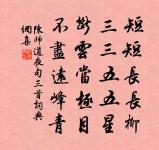 短短長長柳
三三五五星
斷雲當極目
不盡遠峰青
陳師道夜句三首詞典
網集